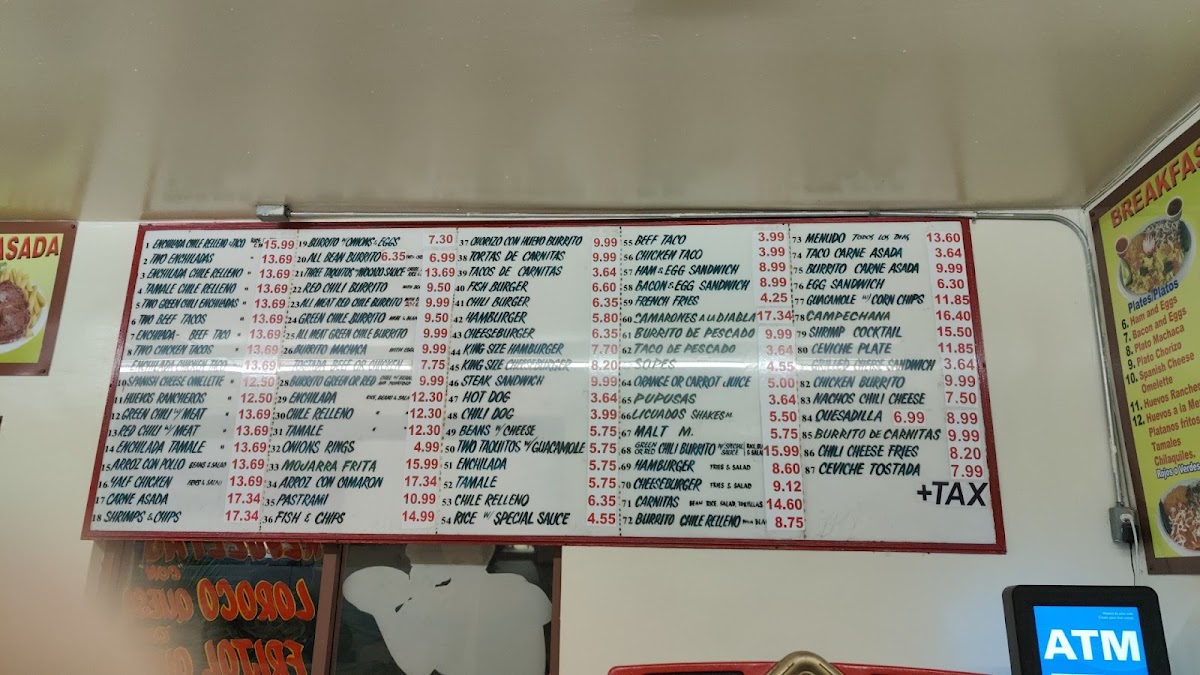 ASADA
1 ENCHILADA CHILE RELLENO & TACO 15.99
2 TWO ENCHILADAS " 13.69
3 ENCHILADA CHILE RELLENO " 13.69
4 TAMALE CHILE RELLENO " 13.69
5 TWO GREEN CHILI ENCHILADAS " 13.69
6 TWO BEEF TACOS " 13.69
7 ENCHILADA- BEEF TACO " 13.69
8 TWO CHICKEN TACOS " 13.69
ENCHILADA CHICKEN TACO 13.69
10 SPANISH CHEESE OMELETTE " 12.50
11 HUEVOS RANCHEROS " 12.50
12 GREEN CHILI W/ MEAT " 13.69
13 RED CHILI W/ MEAT " 13.69
14 ENCHILADA TAMALE " 13.69
15 ARROZ CON POLLO BEANS & SALAD 13.69
16 HALF CHICKEN FRIES & SALAD 13.69
17 CARNE ASADA 17.34
18 SHRIMPS & CHIPS 17.34
19 BURRITO W/ONIONS & EGGS 7.30
20 ALL BEAN BURRITO 6.35 6.99
21 THREE TAQUITOS W/AVOCADO SAUCE 13.69
22 RED CHILI BURRITO 9.50
23 ALL MEAT RED CHILE BURRITO 9.99
24 GREEN CHILE BURRITO MEAT & BEAN 9.50
25 ALL MEAT GREEN CHILE BURRITO 9.99
26 BURRITO MACHACA 9.99
TOSTADA BEEF OR CHICKEN 7.75
28 BURRITO GREEN OR RED 9.99
29 ENCHILADA RICE, BEANS & SALAD 12.30
30 CHILE RELLENO " 12.30
31 TAMALE " 12.30
32 ONIONS RINGS 4.99
33 MOJARRA FRITA 15.99
34 ARROZ CON CAMARON 17.34
35 PASTRAMI 10.99
36 FISH & CHIPS 14.99
37 CHORIZO CON HUEVO BURRITO 9.99
38 TORTAS DE CARNITAS 9.99
39 TACOS DE CARNITAS 3.64
40 FISH BURGER 6.60
41 CHILI BURGER 6.35
42 HAMBURGER 5.80
43 CHEESEBURGER 6.35
44 KING SIZE HAMBURGER 7.70
45 KING SIZE CHEESEBURGER 8.20
46 STEAK SANDWICH 9.99
47 HOT DOG 3.64
48 CHILI DOG 3.99
49 BEANS W/ CHEESE 5.75
50 TWO TACUITOS W/ GUACAMOLE 5.75
51 ENCHILADA 5.75
52 TAMALE 5.75
53 CHILE RELLENO 6.35
54 RICE W/ SPECIAL SAUCE 4.55
55 BEEF TACO 3.99
56 CHICKEN TACO 3.99
57 HAM & EGG SANDWICH 8.99
58 BACON & EGG SANDWICH 8.99
59 FRENCH FRIES 4.25
60 CAMARONES A LA DIABLA 17.34
61 BURRITO DE PESCADO 9.99
62 TACO DE PESCADO 3.64
SOPES 4.55
64 ORANGE OR CARROT JUICE 5.00
65 PUPUSAS 3.64
66 LICUADOS SHAKES M. 5.50
67 MALT M. 5.75
68 GREEN OR RED CHILI BURRITO W/SPECIAL SAUCE 15.99
69 HAMBURGER FRIES & SALAD 8.60
70 CHEESEBURGER FRIES & SALAD 9.12
71 CARNITAS BEAN RICE SALAD, TORTILLAS 14.60
72 BURRITO CHILE RELLENO 8.75
73 MENUDO TODOS LOS DIAS 13.60
74 TACO CARNE ASADA 3.64
75 BURRITO CARNE ASADA 9.99
76 EGG SANDWICH 6.30
77 GUACAMOLE W/ CORN CHIPS 11.85
78 CAMPECHANA 16.40
79 SHRIMP COCKTAIL 15.50
80 CEVICHE PLATE 11.85
GRILLED CHEESE SANDWICH 3.64
82 CHICKEN BURRITO 9.99
83 NACHOS CHILI CHEESE 7.50
84 QUESADILLA 6.99 8.99
85 BURRITO DE CARNITAS 9.99
86 CHILI CHEESE FRIES 8.20
87 CEVICHE TOSTADA 7.99
+TAX
BREAKFAS
Plates Platos
6. Ham and Eggs
7. Bacon and Eggs
8. Plato Machaca
9. Plato Chorizo
10. Spanish Cheese
Omelette
11. Huevos Rancheros
12. Huevos a la Mex
Platanos fritos
Tamales
Chilaquiles.
Rojos o Verdes
"CON"
LOROCO QUESO
FRIJOL QU
ATM